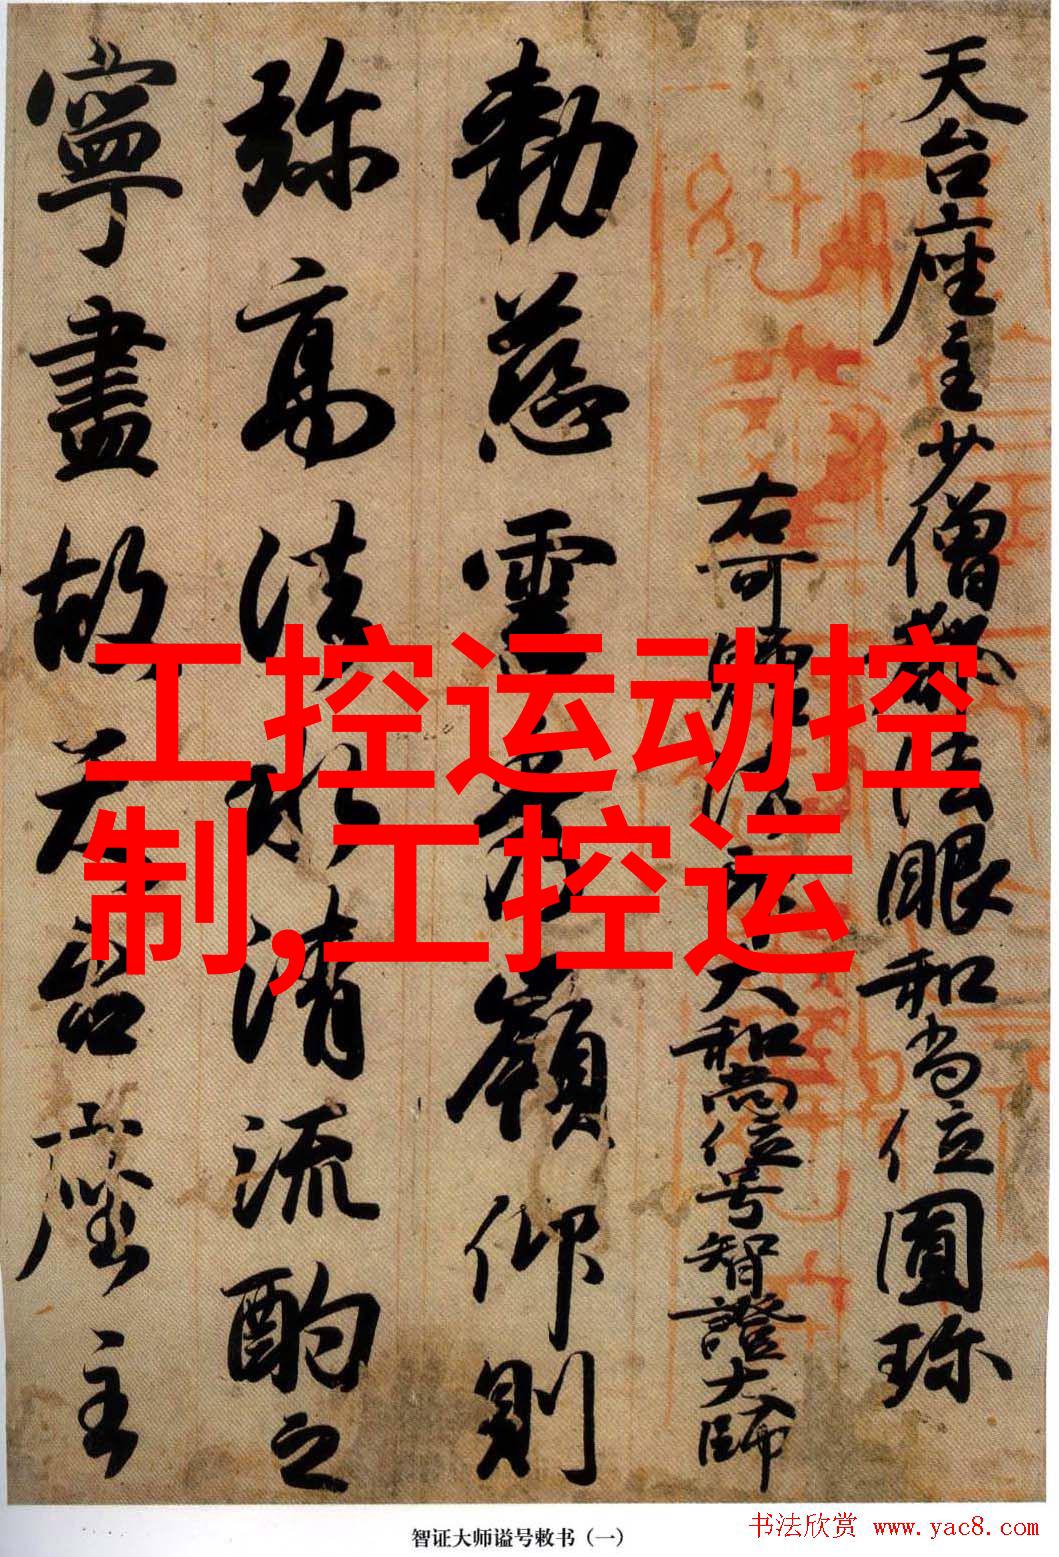 天台座主少僧都法眼和尚位圓珎
右可贈法印大和尚位号智證大師
勅慈雲秀嶺仰則
弥高法水清流酌之
寧盡故天台座主
工控运动控
制,工控运
智证大师谥号敕书（一）
书法欣赏 www.yac8.com